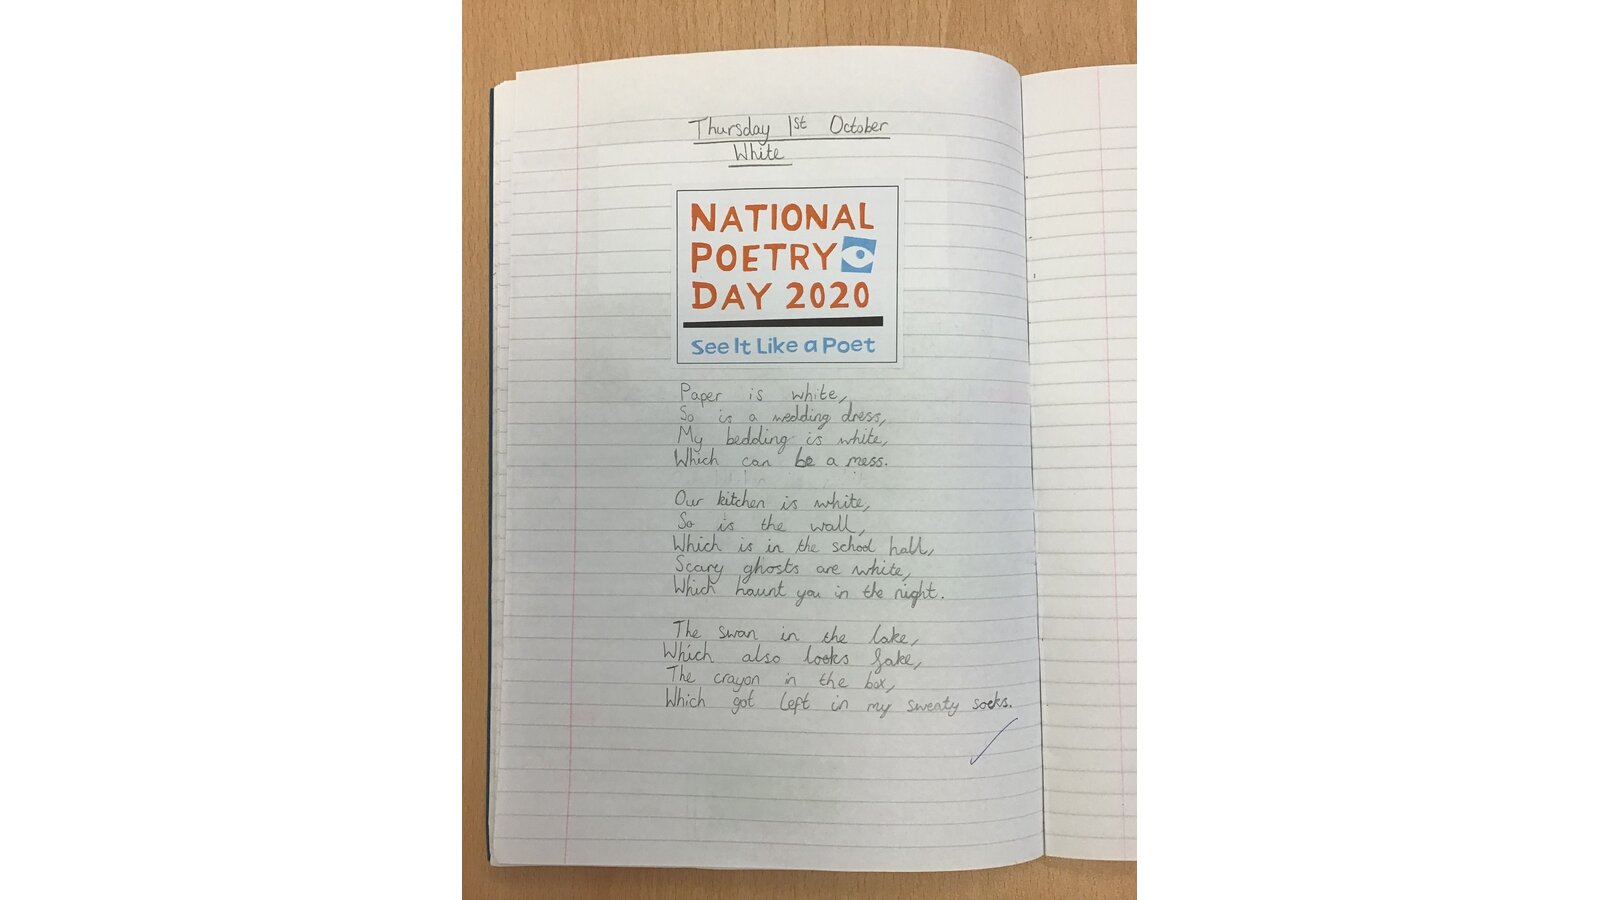 Thursday 1st October
White
NATIONAL
POETRY
DAY 2020
See It Like a Poet
Paper is white,
So is a wedding dress,
My bedding is white,
Which can be a mess.
Our kitchen is white,
So is the wall,
Which is in the school hall,
Scary ghosts are white,
Which haunt you in the night.
The swan in the lake,
Which also looks fake,
The crayon in the box,
Which got left in my sweaty socks.